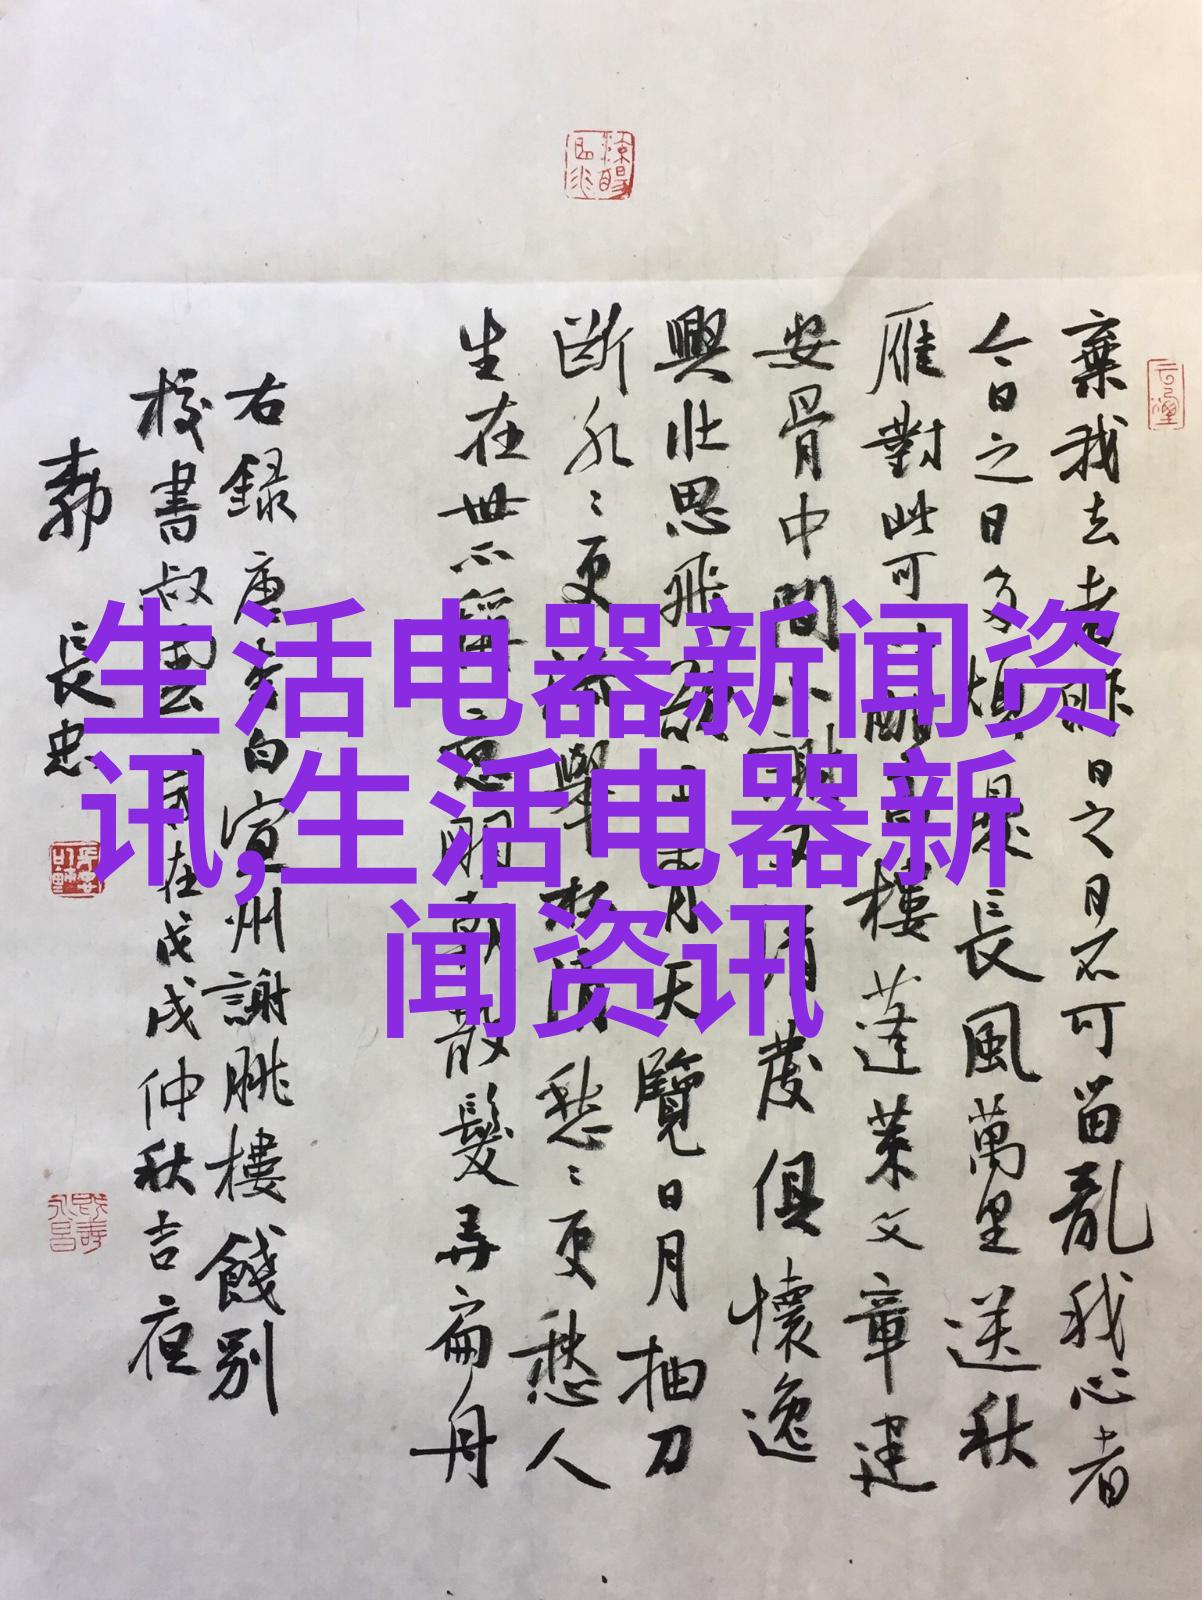 生活电器新闻资
讯,生活电器新
闻资讯
棄我去者昨日之日不可留亂我心者
今日之日多煩憂長風萬里送秋
雁對此可酣高樓蓬萊文章建
安骨中間小謝又清發俱懷逸
興壯思飛欲上青天覽日月抽刀
斷水〻更流舉杯消愁〻更愁人
生在世不稱意明朝散髮弄扁舟
右録唐李白宣州謝朓樓餞別
校書叔雲在戊戌仲秋吉夜
郭長忠